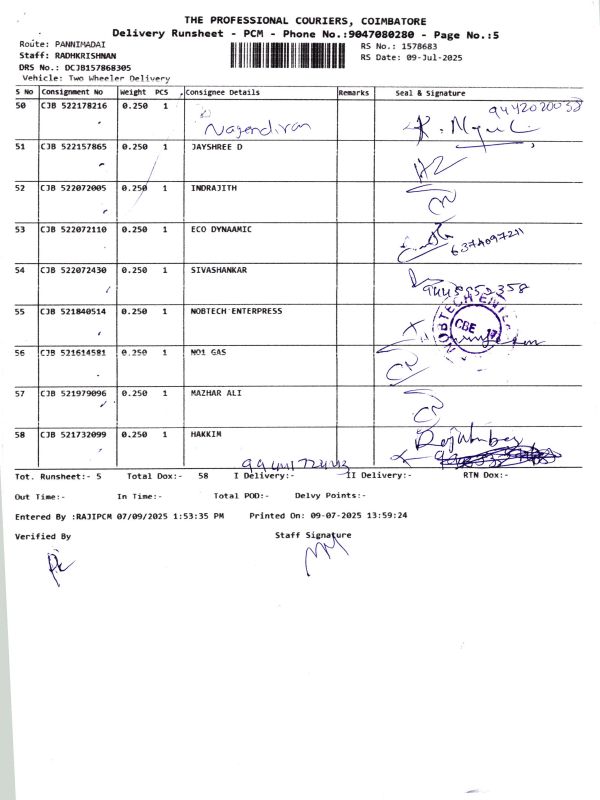 THE PROFESSIONAL COURIERS, COIMBATORE
Delivery Runsheet - PCM - Phone No.:9047080280 - Page No.:5
Route: PANNIMADAI
RS No.: 1578683
Staff: RADHKRISHNAN
RS Date: 09-Jul-2025
DRS No.: DCJB157868305
Vehicle: Two Wheeler Delivery
S No Consignment No Weight PCS Consignee Details Remarks Seal & Signature
50 CJB 522178216 0.250 1 Nagendiran 9442020038
51 CJB 522157865 0.250 1 JAYSHREE D
52 CJB 522072005 0.250 1 INDRAJITH
53 CJB 522072110 0.250 1 ECO DYNAAMIC 6374097211
54 CJB 522072430 0.250 1 SIVASHANKAR
55 CJB 521840514 0.250 1 NOBTECH ENTERPRESS NOBTECH CBE
56 CJB 521614581 0.250 1 NO1 GAS
57 CJB 521979096 0.250 1 MAZHAR ALI
58 CJB 521732099 0.250 1 HAKKIM
Tot. Runsheet:- 5 Total Dox:- 58 I Delivery:- II Delivery:- RTN Dox:-
Out Time:- In Time:- Total POD:- Delvy Points:-
Entered By :RAJIPCM 07/09/2025 1:53:35 PM Printed On: 09-07-2025 13:59:24
Verified By Staff Signature